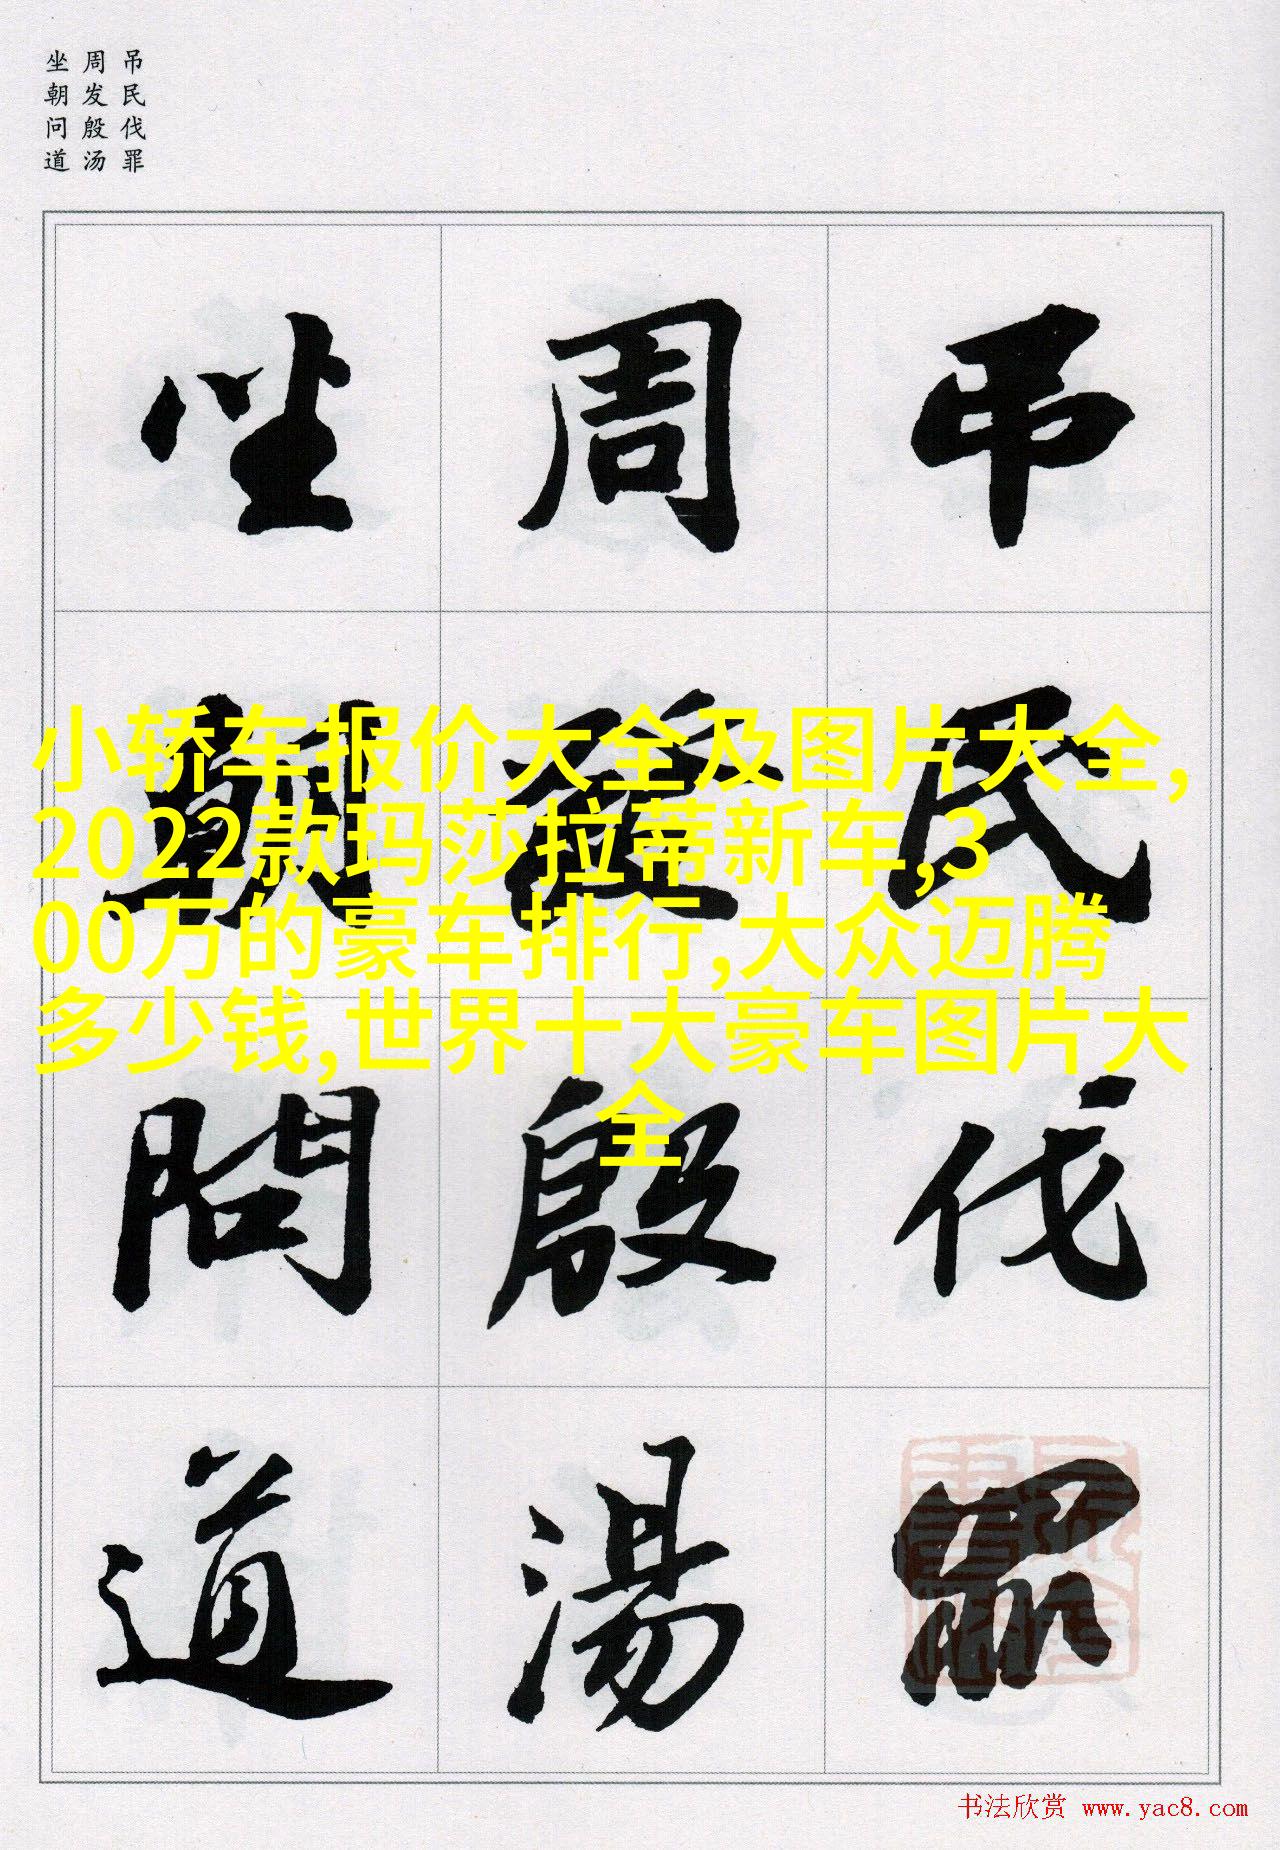 吊民伐罪
周发殷汤
坐朝问道
吊民伐罪
周發殷湯
坐朝問道
小轿车报价大全及图片大全,
2022款玛莎拉蒂新车,3
00万的豪车排行,大众迈腾
多少钱,世界十大豪车图片大
全
书法欣赏 www.yac8.com